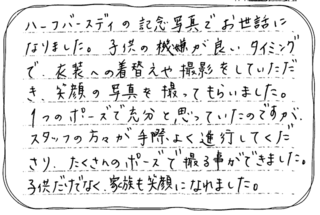 ハーフバースデイの記念写真でお世話に
なりました。子供の機嫌が良いタイミング
で、衣装への着替えや撮影をしていただ
き、笑顔の写真を撮ってもらいました。
1つのポーズで充分と思っていたのですが、
スタッフの方々が手際よく進行してくだ
さり、たくさんのポーズで撮る事ができました。
子供だけでなく家族も笑顔になれました。